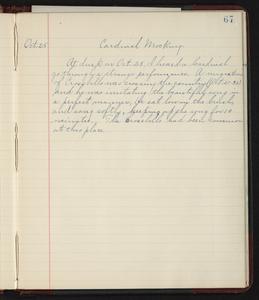 67
Oct. 25 Cardinal Mocking.
At dusk on Oct. 25, I heard a Cardinal
go through a strange performance. A migration
of Crossbills was crossing the country (Oct.
and he was imitating the beautiful song in
a perfect manner. He sat low in the bush,
and sang softly, keeping up the song for 10
minutes. The Crossbills had been common
at this place.